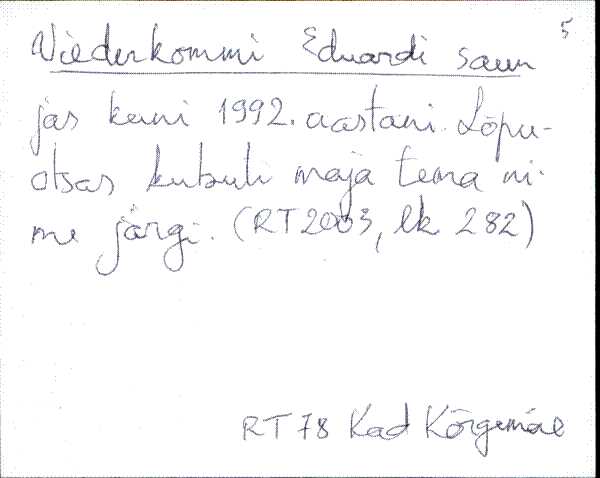 5
Wiederkommi Eduardi saun
jas kuni 1992. aastani. Lõpu-
otsas kutsuti maja tema ni-
me järgi. (RT2003, lk 282)
RT78 Kad Kõrgemäe